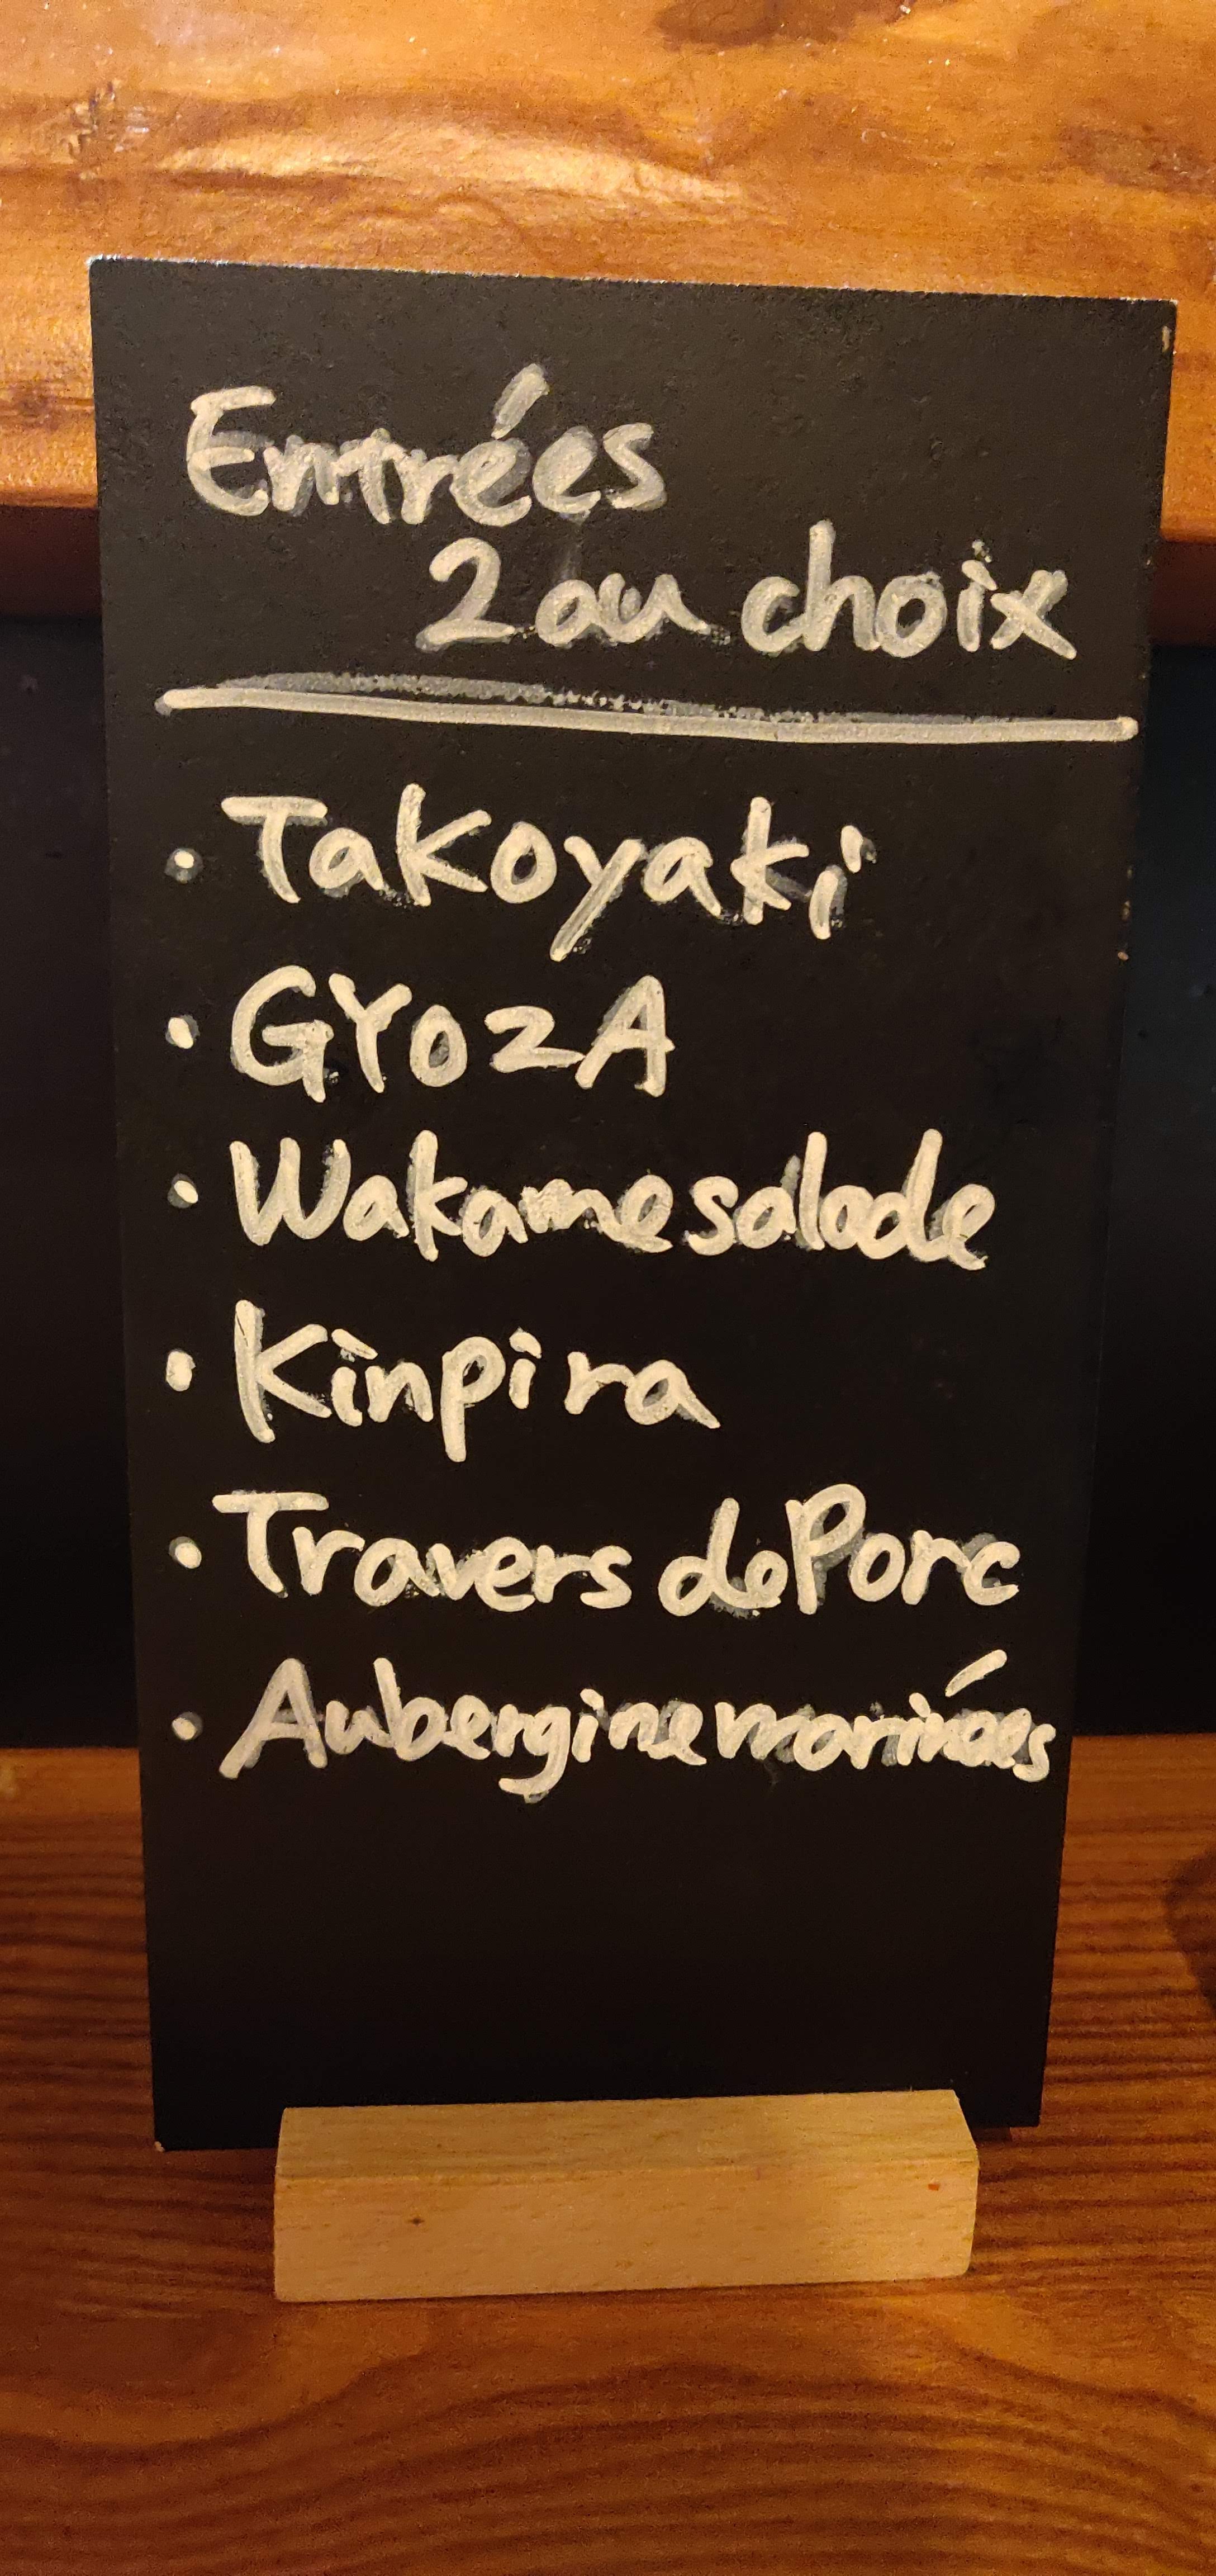 Entrées
2 au choix
• Takoyaki
• GYOZA
• Wakame salade
• Kinpira
• Travers de Porc
• Aubergine marinées